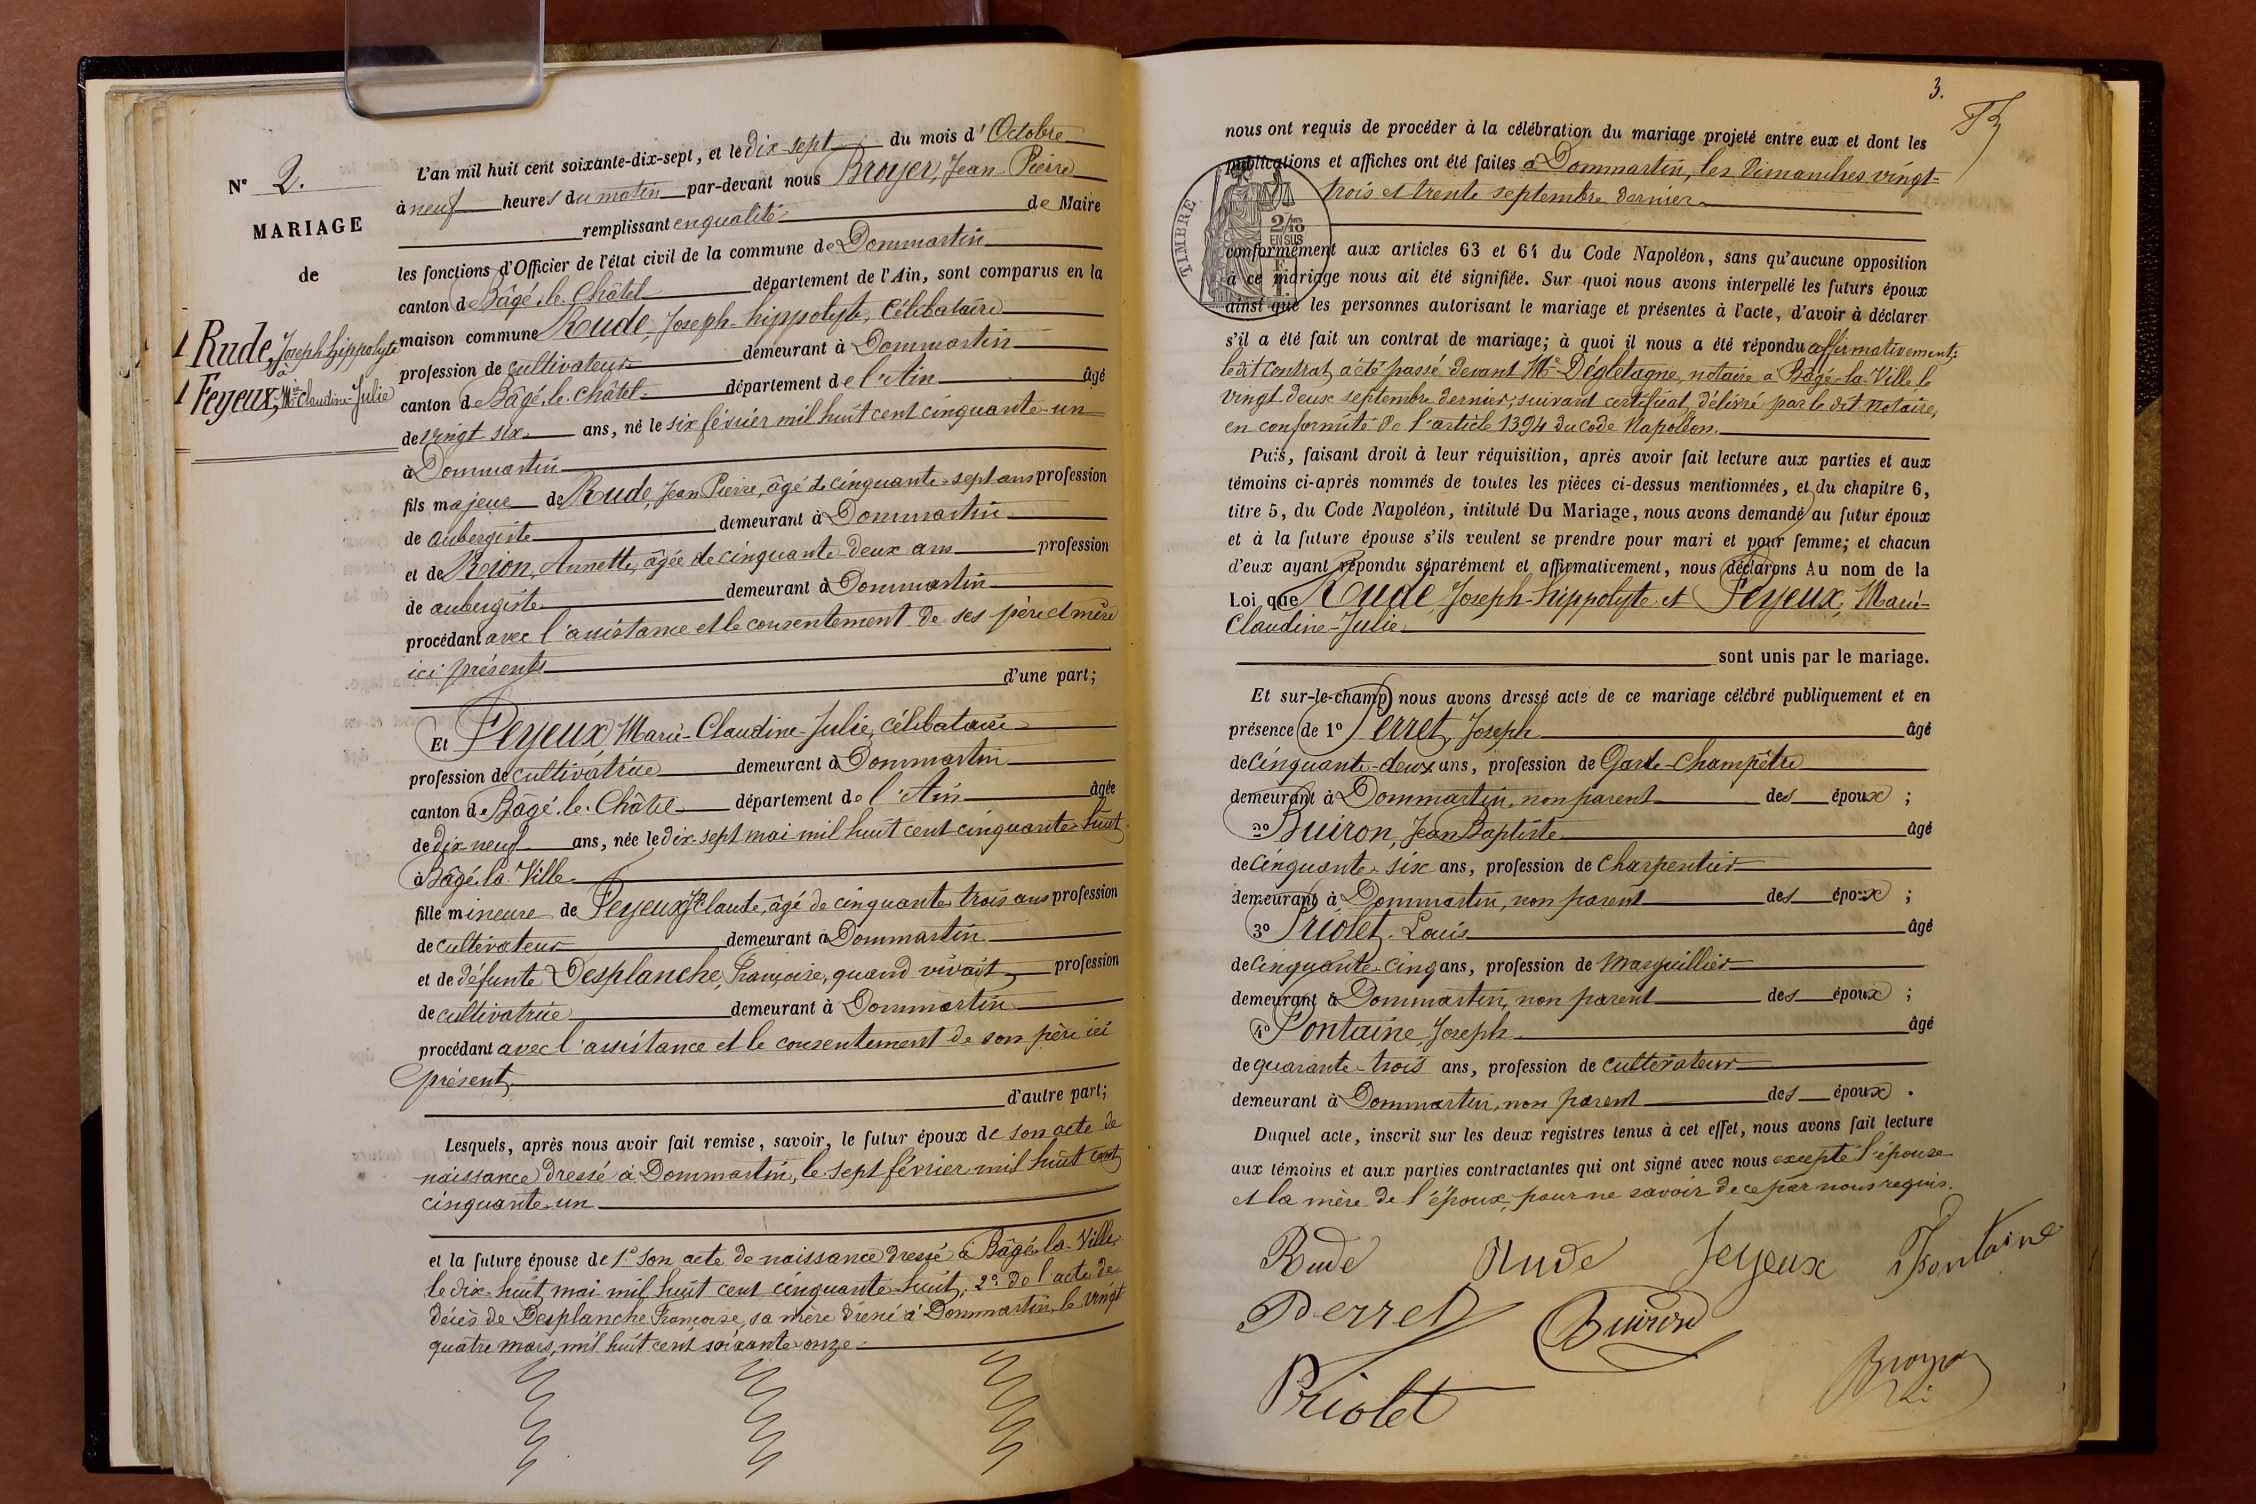 N° 2.
MARIAGE
de
Rude, Joseph hippolyte
à
Feyeux, Mie Claudine-Julie
L'an mil huit cent soixante-dix-sept, et le dix-sept du mois d'Octobre
à neuf heures du matin par-devant nous Broyer, Jean-Pierre
remplissant en qualité de Maire
les fonctions d'Officier de l'état civil de la commune de Dommartin
canton de Bâgé-le-Châtel département de l'Ain, sont comparus en la
maison commune Rude, Joseph-hippolyte, célibataire
profession de cultivateur demeurant à Dommartin
canton de Bâgé-le-Châtel département de l'Ain âgé
de vingt-six ans, né le six février mil huit cent cinquante-un
à Dommartin
fils majeur de Rude, Jean Pierre, âgé de cinquante-sept ans profession
de aubergiste demeurant à Dommartin
et de Boron, Annette, âgée de cinquante-deux ans profession
de aubergiste demeurant à Dommartin
procédant avec l'assistance et le consentement de ses père et mère
ici présents
d'une part;
Et Feyeux, Marie-Claudine-Julie, célibataire
profession de cultivatrice demeurant à Dommartin
canton de Bâgé-le-Châtel département de l'Ain âgée
de dix neuf ans, née le dix-sept mai mil huit cent cinquante-huit
à Bâgé-la-Ville
fille mineure de Feyeux, Claude, âgé de cinquante-trois ans profession
de cultivateur demeurant à Dommartin
et de défunte Desplanche, Françoise, quand vivait profession
de cultivatrice demeurant à Dommartin
procédant avec l'assistance et le consentement de son père ici
présent
d'autre part;
Lesquels, après nous avoir fait remise, savoir, le futur époux de son acte de
naissance dressé à Dommartin, le sept février mil huit cent
cinquante-un
et la future épouse de 1° son acte de naissance dressé à Bâgé-la-Ville
le dix-huit mai mil huit cent cinquante-huit, 2° de l'acte de
décès de Desplanche Françoise, sa mère dressé à Dommartin le vingt
quatre mars, mil huit cent soixante-onze
3.
nous ont requis de procéder à la célébration du mariage projeté entre eux et dont les
publications et affiches ont été faites à Dommartin, les Dimanches vingt-
trois et trente septembre dernier
TIMBRE
2/10
EN SUS
conformément aux articles 63 et 64 du Code Napoléon, sans qu'aucune opposition
à ce mariage nous ait été signifiée. Sur quoi nous avons interpellé les futurs époux
ainsi que les personnes autorisant le mariage et présentes à l'acte, d'avoir à déclarer
s'il a été fait un contrat de mariage; à quoi il nous a été répondu affirmativement;
ledit contrat a été passé devant Me Dégletagne, notaire à Bâgé-la-Ville le
vingt deux septembre dernier, suivant certificat délivré par le dit notaire,
en conformité de l'article 1394 du code Napoléon.
Puis, faisant droit à leur réquisition, après avoir fait lecture aux parties et aux
témoins ci-après nommés de toutes les pièces ci-dessus mentionnées, et du chapitre 6,
titre 5, du Code Napoléon, intitulé Du Mariage, nous avons demandé au futur époux
et à la future épouse s'ils veulent se prendre pour mari et pour femme; et chacun
d'eux ayant répondu séparément et affirmativement, nous déclarons Au nom de la
Loi que Rude Joseph-hippolyte et Feyeux, Marie-
Claudine-Julie
sont unis par le mariage.
Et sur-le-champ nous avons dressé acte de ce mariage célébré publiquement et en
présence de 1° Perret, Joseph âgé
de cinquante-deux ans, profession de Garde-Champêtre
demeurant à Dommartin, non parent des époux ;
2° Buiron, Jean Baptiste âgé
de cinquante-six ans, profession de charpentier
demeurant à Dommartin, non parent des époux ;
3° Priolet, Louis âgé
de cinquante-cinq ans, profession de Marguillier
demeurant à Dommartin, non parent des époux ;
4° Fontaine, Joseph âgé
de quarante-trois ans, profession de cultivateur
demeurant à Dommartin, non parent des époux .
Duquel acte, inscrit sur les deux registres tenus à cet effet, nous avons fait lecture
aux témoins et aux parties contractantes qui ont signé avec nous excepté l'épouse
et la mère de l'époux, pour ne savoir de ce par nous requis.
Rude Rude feyeux Fontaine
Perret Buiron
Priolet Broyer